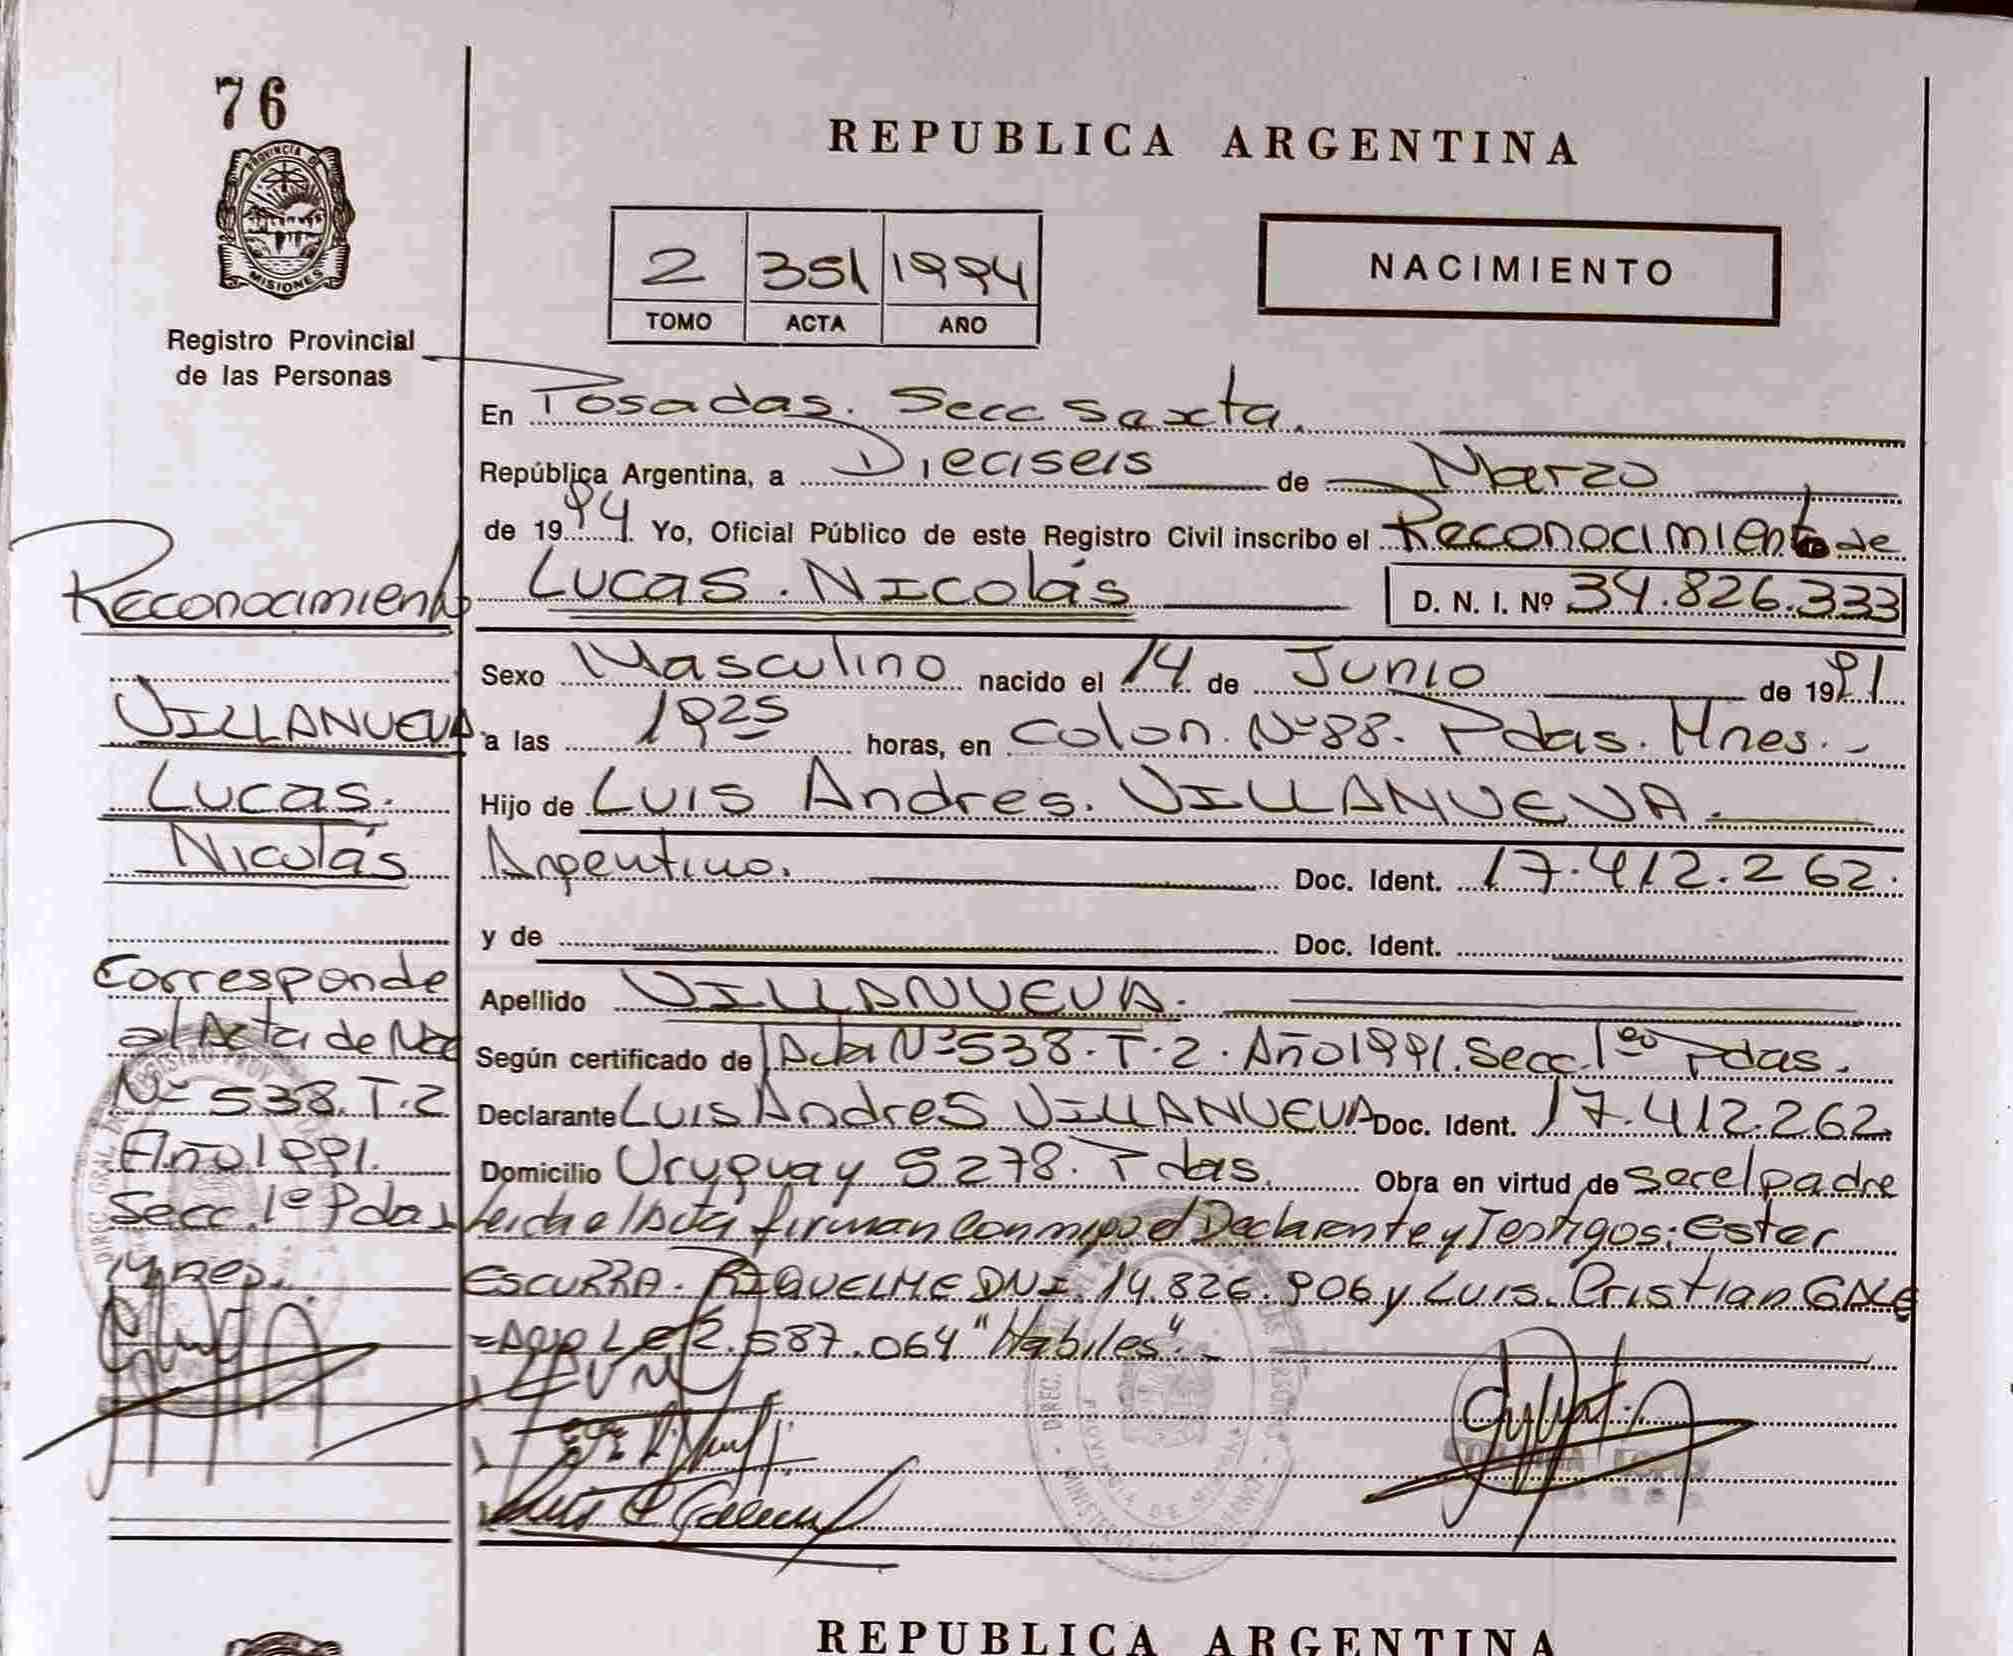 76
PROVINCIA DE
MISIONES
Registro Provincial
de las Personas
REPUBLICA ARGENTINA
2 351 1994
TOMO ACTA AÑO
NACIMIENTO
En Posadas. Secc Sexta.
República Argentina, a Dieciseis de Marzo
de 1994 Yo, Oficial Público de este Registro Civil inscribo el Reconocimiento de
Lucas. Nicolás D. N. I. Nº 34.826.333
Sexo Masculino nacido el 14 de Junio de 1991
a las 1925 horas, en Colon. Nº 88. Pdas. Mnes.-
Hijo de Luis Andres. VILLANUEVA.
Argentino. Doc. Ident. 17.412.262.
y de Doc. Ident.
Apellido VILLANUEVA.
Según certificado de Acta Nº 538. T. 2. Año 1991. Secc. 1º Pdas.
Declarante Luis Andres VILLANUEVA Doc. Ident. 17.412.262
Domicilio Uruguay 5278. Pdas. Obra en virtud de ser el padre
leida el Acta firman conmigo el Declarante y Testigos: Ester
ESCURRA. RIQUELME DNI. 14.826.906 y Luis. Cristian
L E 2.587.064 "Habiles".
Reconocimiento
VILLANUEVA
Lucas.
Nicolás
Corresponde
al Acta de Nac
Nº 538. T. 2
Año 1991.
Secc. 1º Pdas
Mnes.
REPUBLICA ARGENTINA